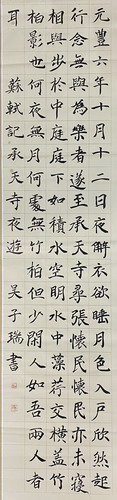 元豐六年十月十二日夜解衣欲睡月色入戶欣然起
行念無與為樂者遂至承天寺尋張懷民懷民亦未寢
相與步於中庭庭下如積水空明水中藻荇交橫蓋竹
柏影也何夜無月何處無竹柏但少閑人如吾兩人者
耳 蘇軾記承天寺夜遊 吴子瑞書